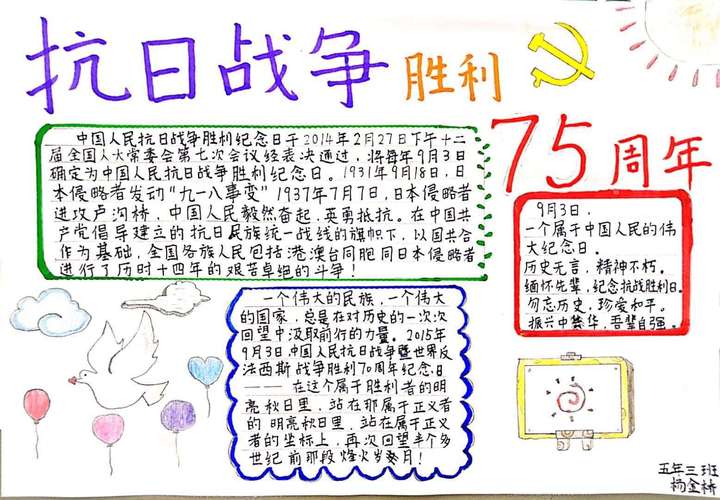 抗日战争胜利
75周年
中国人民抗日战争胜利纪念日于2014年2月27日下午十二
届全国人大常委会第七次会议经表决通过，将每年9月3日
确定为中国人民抗日战争胜利纪念日。1931年9月18日，日
本侵略者发动“九一八事变”1937年7月7日，日本侵略者
进攻卢沟桥，中国人民毅然奋起，英勇抵抗。在中国共
产党倡导建立的抗日民族统一战线的旗帜下，以国共合
作为基础，全国各族人民包括港澳台同胞同日本侵略者
进行了历时十四年的艰苦卓绝的斗争！
9月3日，
一个属于中国人民的伟
大纪念日。
历史无言，精神不朽。
缅怀先辈，纪念抗战胜利日。
勿忘历史，珍爱和平。
振兴中华，吾辈自强。
一个伟大的民族，一个伟大
的国家，总是在对历史的一次次
回望中汲取前行的力量。2015年
9月3日，中国人民抗日战争暨世界反
法西斯战争胜利70周年纪念日
———在这个属于胜利者的明
亮秋日里，站在那属于正义者
的明亮秋日里，站在属于正义
者的坐标上，再次回望半个多
世纪前那段烽火岁月！
五年三班
杨金林